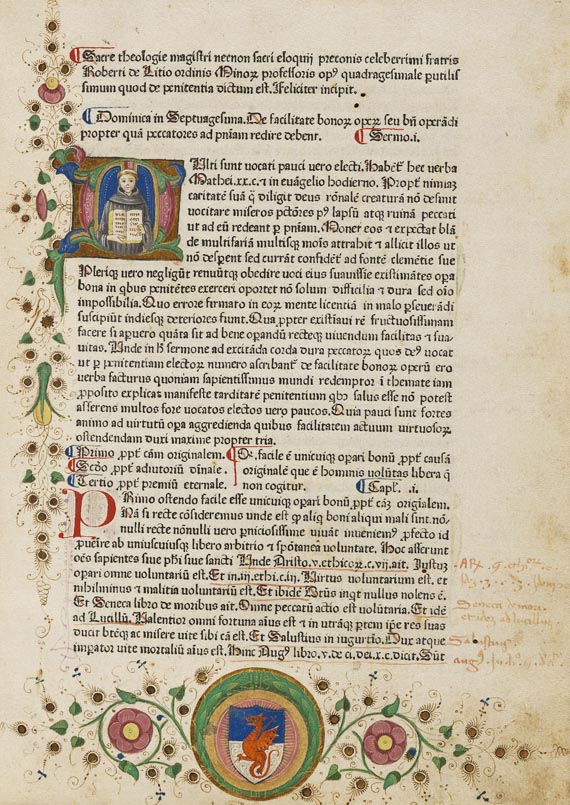 Sacre theologie magistri necnon sacri eloquij preconis celeberrimi fratris
Roberti de Litio ordinis Minoꝝ professoris opꝰ quadragesimale ꝑutilis
simum quod de penitentia dictum est. Feliciter incipit.
Dominica in Septuagesima. De facilitate bonoꝝ opeꝝ seu bn̄ operādi
propter quā peccatores ad pn̄iam redire debent. Sermo.i.
MUlti sunt vocati pauci vero electi. Habēt᷑ hec verba
Mathei.xx.c. ⁊ in euāgelio hodierno. Propt̄ nimiaꝫ
caritatē suā q̄ diligit deus rōnalē creaturā nō desinit
vocitare miseros pctōres pꝰ lapsū atqꝫ ruinā peccati
ut ad eū redeant ꝑ pn̄iam. Monet eos ⁊ expectat blā
de multifariā multisqꝫ moīs attrahit ⁊ allicit illos ut
nō despent sed currāt confidēt᷑ ad fontē clemētie sue
Pleriqꝫ vero negligūt renuūtqꝫ obedire voci eius suauissie existimātes oꝑa
bona in qbus penitētes exerceri oportet nō solum difficilia ⁊ dura sed oīo
impossibilia. Quo errore firmato in eoꝝ mente licentiā in malo ꝑseuerādi
suscipiūt indiesqꝫ deteriores fiunt. Qua ꝓpter existīaui rē fructuosissimam
facere si apuero quāta sit ad bene operandū recteqꝫ viuendum facilitas ⁊ sua
uitas. Unde in h̄ sermone ad excitāda corda dura peccatoꝝ quos deꝰ vocat
ut ꝑ penitentiam electoꝝ numero ascribant᷑ de facilitate bonoꝝ operū ero
verba facturus quoniam sapientissimus mundi redemptor ī themate iam
ꝓposito explicās manifeste tarditatē penitentium qbꝰ salus esse nō potest
asserens multos fore vocatos electos vero paucos. Quia pauci sunt fortes
animo ad virtutū oꝑa aggredienda quibus facilitatem actuum virtuosoꝝ
ostendendam duxi maxime propter tria.
Primo ꝓpt̄ cām originalem.
Scd̄o ꝓpt̄ adiutoriū diuinale.
Tertio ꝓpt̄ premiū eternale.
Qr̄ facile ē unicuiqꝫ oꝑari bonū ꝓpt̄ causā
originalē que ē hominis volūtas libera q̄
non cogitur. Capl̄. .i.
PRimo ostendo facile esse unicuiqꝫ oꝑari bonū ꝓpt̄ cāꝫ origīalem.
Nā si recte cōsideremus unde est qꝫ aliq̄ boni aliqui mali sunt. nō-
nulli recte nōnulli vero ꝑniciosissime viuāt inueniemꝰ ꝓfecto id
ꝓueīre ab uniuscuiusqꝫ libero arbitrio ⁊ spōtanea voluntate. Hoc asserunt
oēs sapientes siue phi siue sancti Unde Aristo.v.ethicoꝝ.c.vij.ait. Justuꝫ
oꝑari omne voluntariū est. Et in.iij.ethi.c.iij. Virtus voluntarium est. et
nihilminus ⁊ malitia voluntariū est. Et ibidē Btūs inqt nullus nolens ē.
Et Seneca libro de moribus ait. Omne peccatū actio est volūtaria. Et idē
ad Lucillū. Valentior omni fortuna aīus est ⁊ in utrāqꝫ ꝑtem ipē res suas
ducit bt̄eqꝫ ac misere vite sibi cā est. Et Salustius in iugurtīo. Dux atqꝫ
imꝑator vite mortaliū aīus est. Hinc Augꝰ libro.v.de ci.dei.x.c.dicit. Sūt
Salustiꝰ